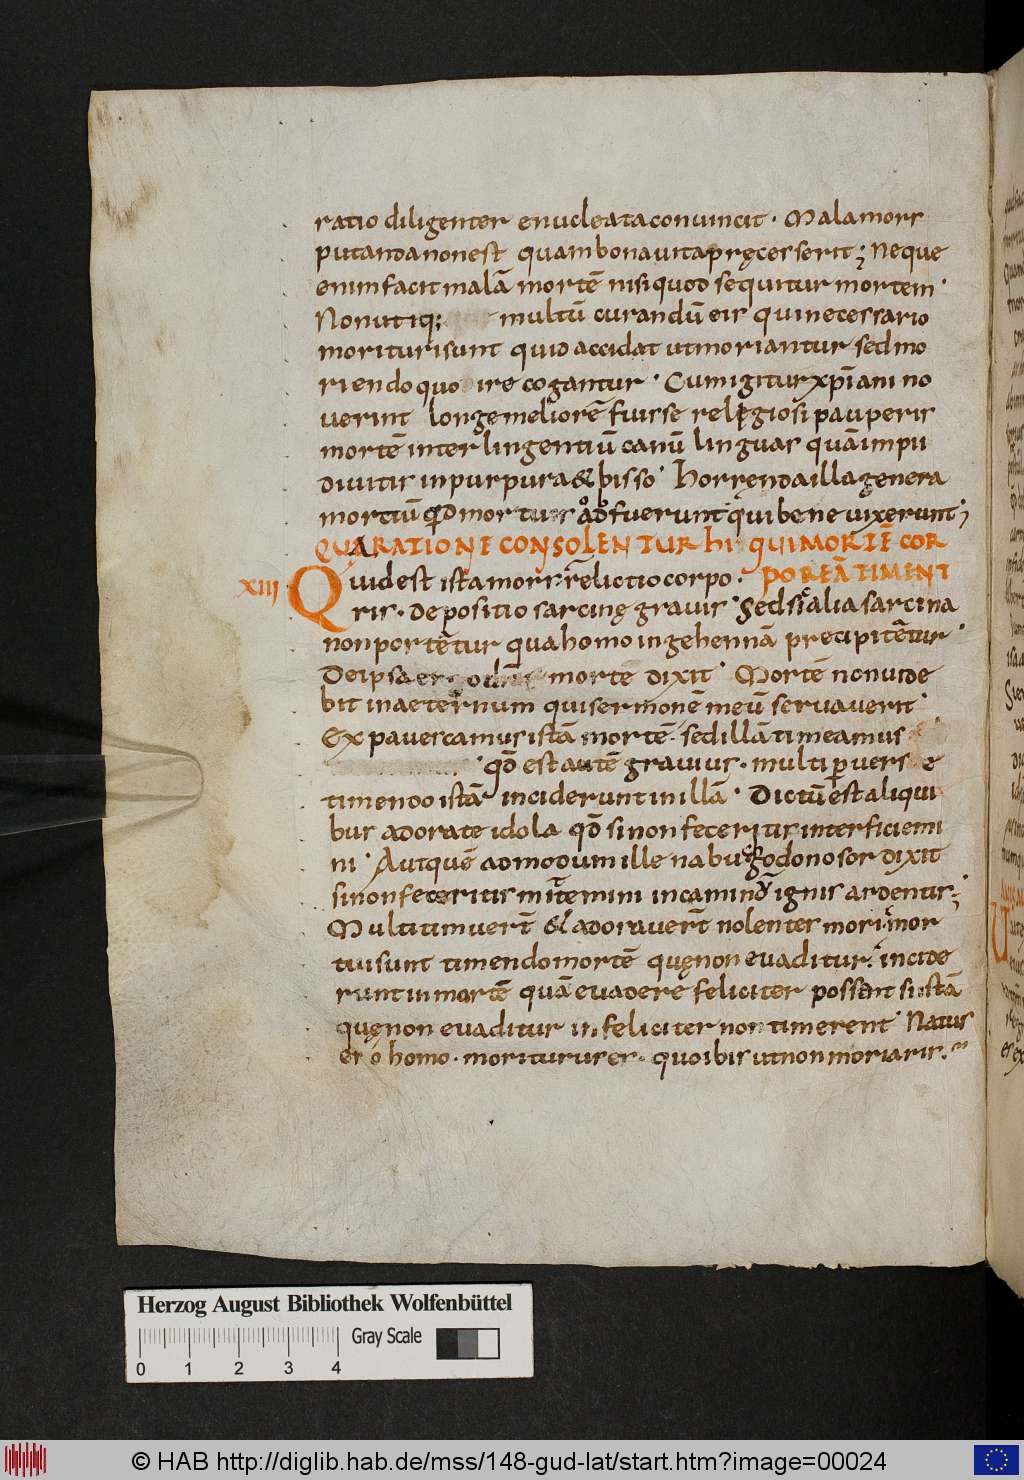 ratio diligenter enucleata conuincit · Mala mors
putanda non est quam bona uita pręcesserit ; Neque
enim facit malā mortē nisi quod sequitur mortem ·
Non utiq; multū curandū eis qui necessario
morituri sunt quid accidat ut moriantur sed mo
riendo quo ire cogantur · Cum igitur xp̄iani no
uerint longe meliorē fuisse religiosi pauperis
mortē inter lingentiū canū linguas quā impii
diuitis in purpura & bisso · horrenda illa genera
mortiū qđ mortuis obfuerunt qui bene uixerunt ;
QUA RATIONE CONSOLENTUR hi QUI MORTĒ COR
POREĀ TIMENT
XIII Quid est ista mors · relictio corpo ·
ris · depositio sarcinę grauis · Sed si alia sarcina
non portētur qua homo in gehennā precipitētur ·
De ipsa ergo dn̄s mortē dixit · Mortē non uide
bit in aeternum qui sermonē meū seruauerit ·
Expauercamus istā mortē · sed illā timeamus
· qđ est autē grauius · multi peruerse
timendo istā inciderunt in illā · Dictū est aliqui
bus adorate idola qđ si non feceritis interficiemi
ni · Aut quē admodum ille nabugodonosor dixit
si non feceritis mittemini in caminū ignis ardentis ;
Multi timuerт̄ & adorauerт̄ nolentes mori · mor
tui sunt timendo mortē quę non euaditur · incide
runt in mortē quā euadere feliciter possent si istā
quę non euaditur infeliciter non timerent · Natus
es o homo · moriturus es · quo ibis ut non moriaris ·
Herzog August Bibliothek Wolfenbüttel
Gray Scale
0 1 2 3 4
© HAB http://diglib.hab.de/mss/148-gud-lat/start.htm?image=00024